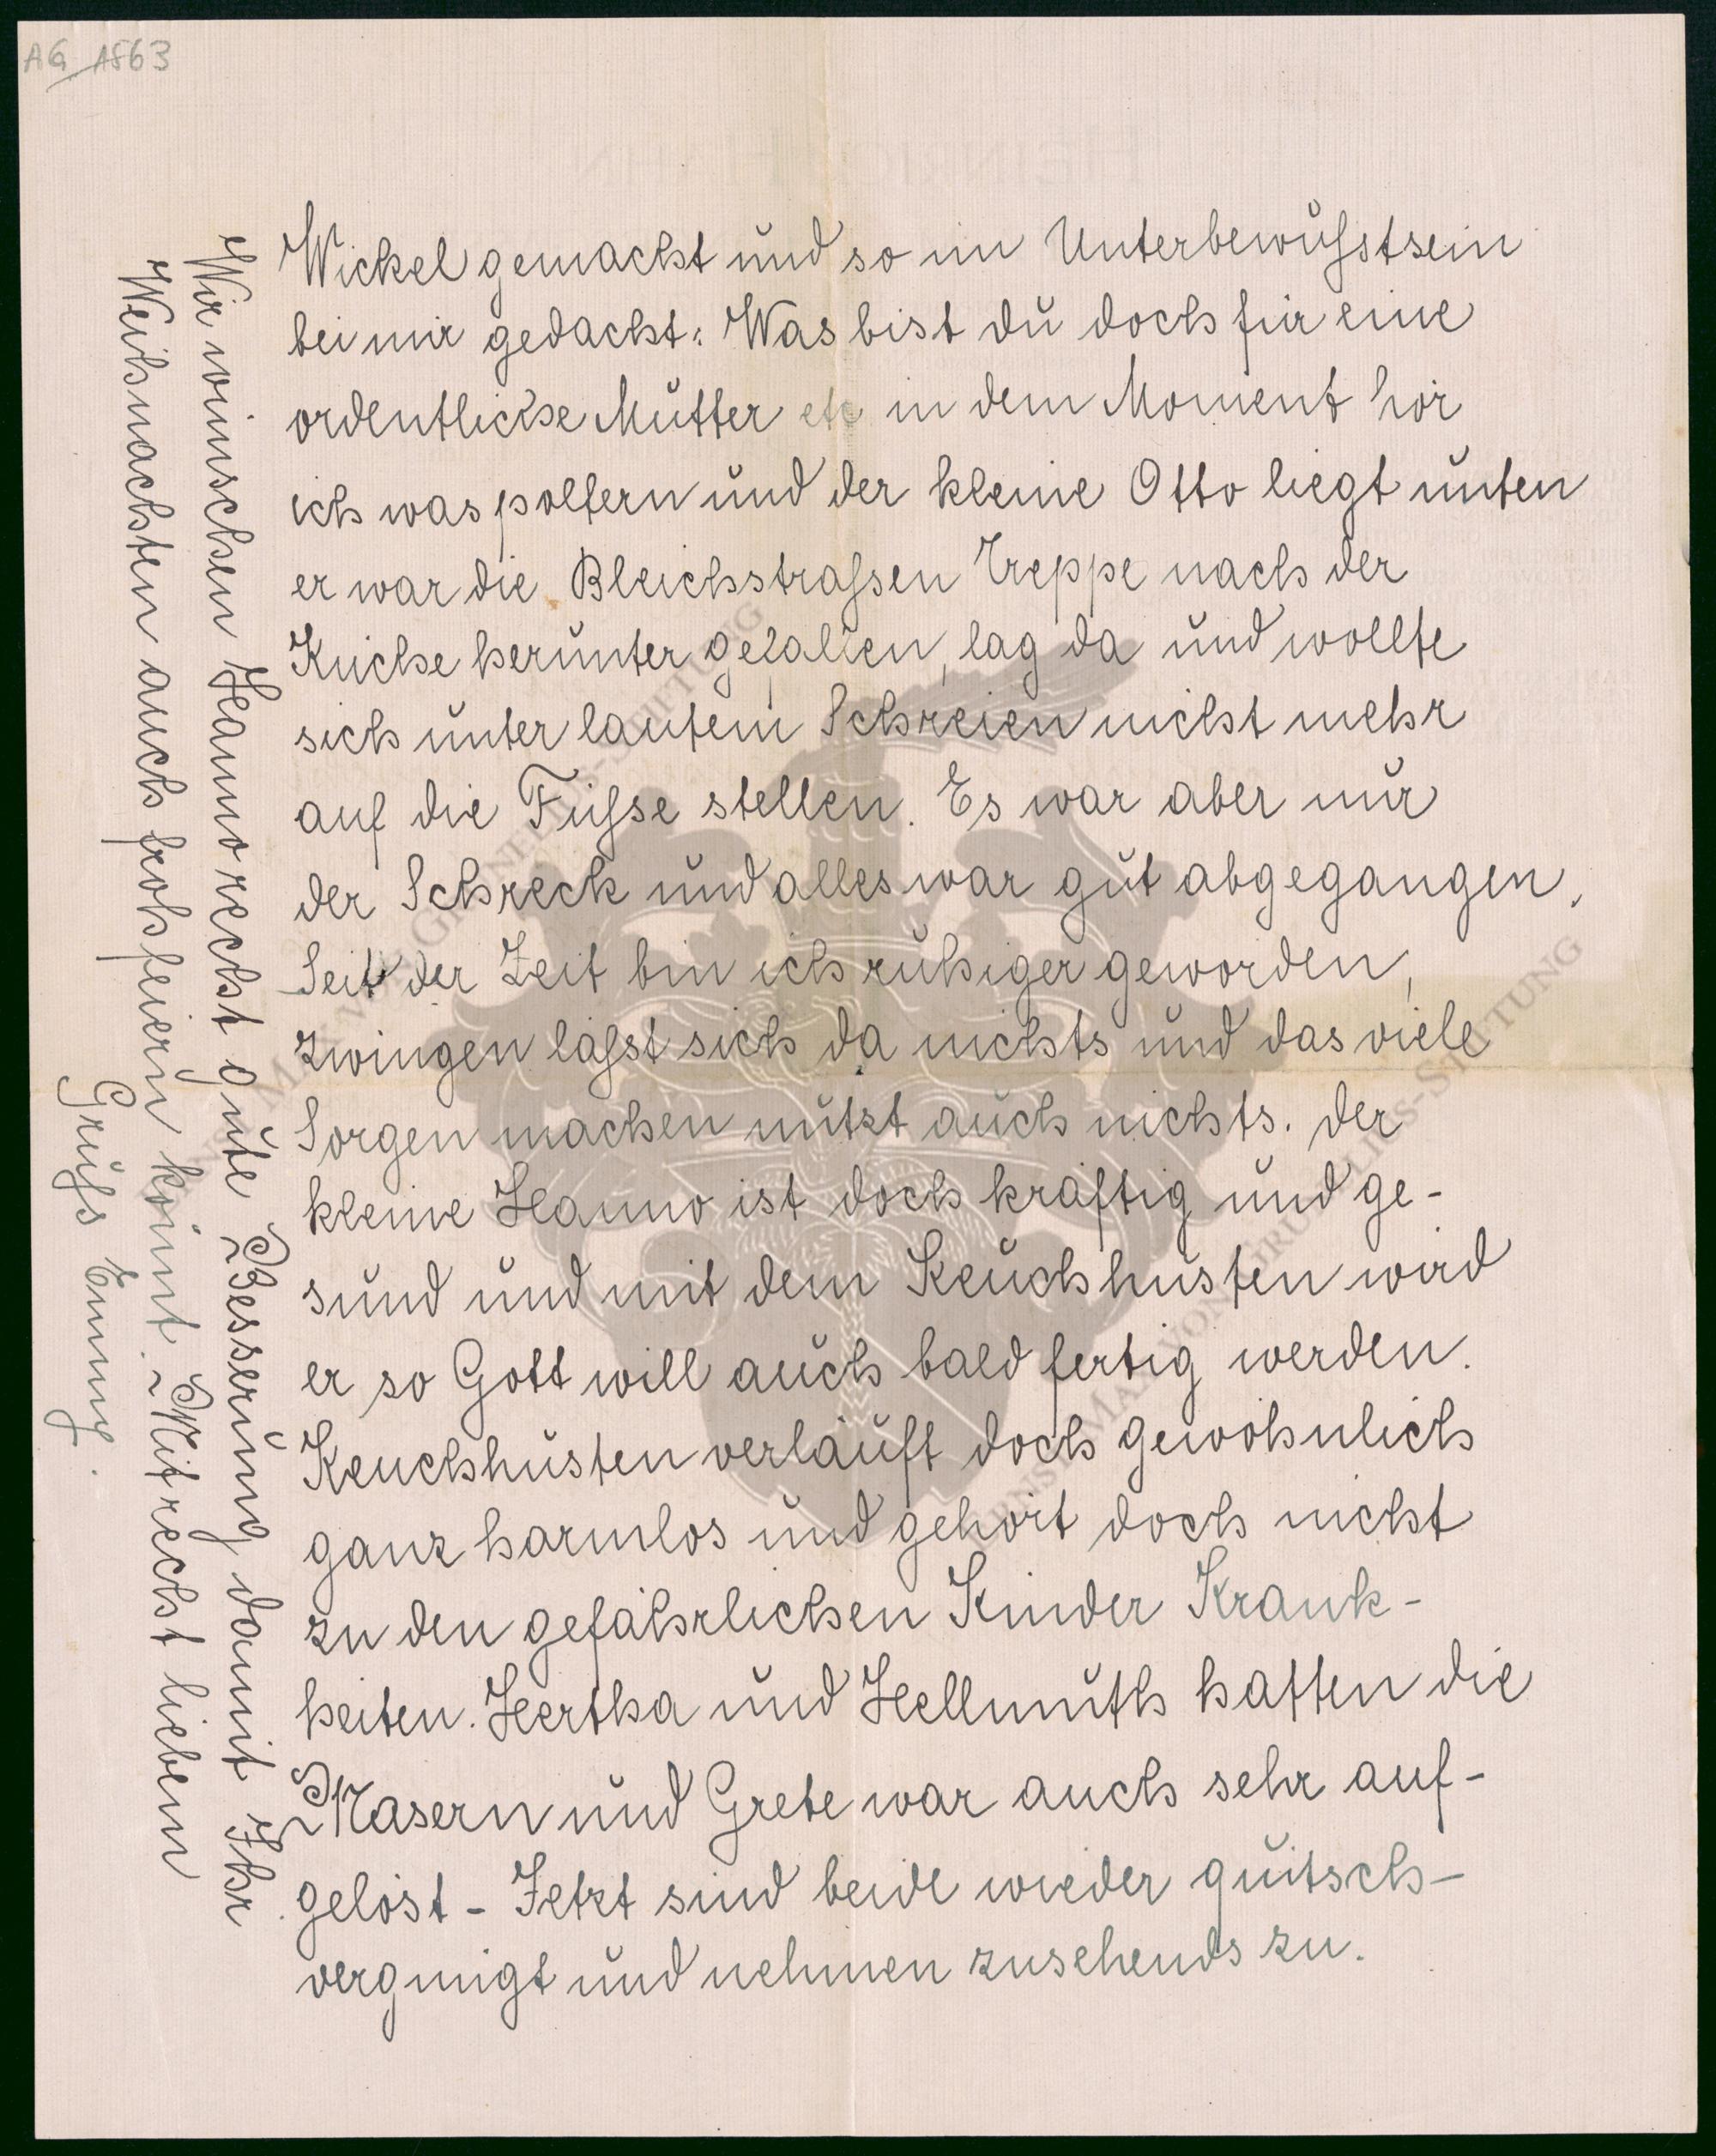 AG 1563
Wickel gemacht und so im Unterbewußstsein
bei mir gedacht: Was bist du doch für eine
ordentliche Mutter etc in dem Moment hör
ich was poltern und der kleine Otto liegt unten
er war die Bleichstraßsen Treppe nach der
Küche herunter gefallen, lag da und wollte
sich unter lautem Schreien nicht mehr
auf die Füßse stellen. Es war aber nur
der Schreck und alles war gut abgegangen.
Seit der Zeit bin ich ruhiger geworden,
zwingen läßst sich da nichts und das viele
Sorgen machen nützt auch nichts. der
kleine Hanno ist doch kräftig und ge-
sund und mit dem Keuchhusten wird
er so Gott will auch bald fertig werden.
Keuchhusten verläuft doch gewöhnlich
ganz harmlos und gehört doch nicht
zu den gefährlichen Kinder Krank-
heiten. Hertha und Hellmuth hatten die
Masern und Grete war auch sehr auf-
gelöst - Jetzt sind beide wieder quitsch-
vergnügt und nehmen zusehends zu.
Wir wünschen Hanno recht gute Besserung damit Ihr
Weihnachten auch froh feiern könnt. Mit recht liebem
Grußs Emmy.
ERNST MAX VON GRUNELIUS-STIFTUNG
ERNST MAX VON GRUNELIUS-STIFTUNG